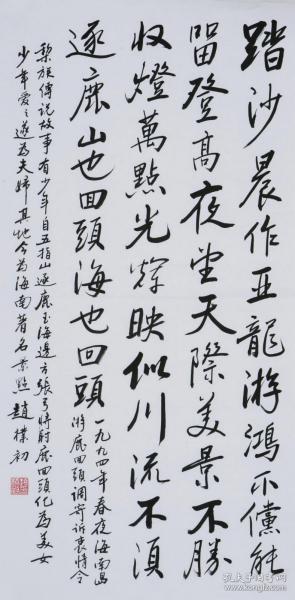 踏沙晨作亚龍游鴻爪儻能
留登高夜望天際美景不勝
收燈萬點光輝映似川流不須
逐鹿山也回頭海也回頭
一九九四年春夜海南島
游鹿回頭調寄訴衷情令
黎族傳说故事有少年自五指山逐鹿至海邊方張弓將射鹿回頭化為美女
少年愛之遂為夫婦其地今為海南著名景點 趙樸初